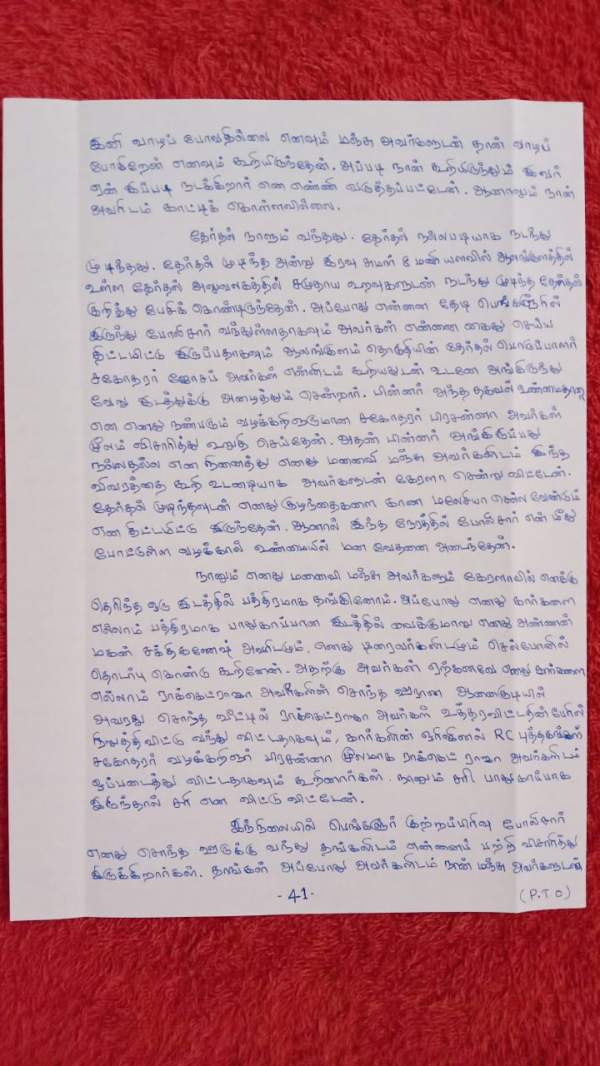 இனி வாழப் போவதில்லை எனவும் மஞ்சு அவர்களுடன் தான் வாழப்
போகிறேன் எனவும் கூறியிருந்தேன். அப்படி நான் கூறியிருந்தும் இவர்
ஏன் இப்படி நடக்கிறார் என எண்ணி வருத்தப்பட்டேன். ஆனாலும் நான்
அவரிடம் காட்டிக் கொள்ளவில்லை.
தேர்தல் நாளும் வந்தது. தேர்தல் நல்லபடியாக நடந்து
முடிந்தது. தேர்தல் முடிந்த அன்று இரவு சுமார் 8 மணியளவில் ஆலங்குளத்தில்
உள்ள தேர்தல் அலுவலகத்தில் சமுதாய உறவுகளுடன் நடந்து முடிந்த தேர்தல்
குறித்து பேசிக் கொண்டிருந்தேன். அப்போது என்னை தேடி பெங்களூரில்
இருந்து போலிசார் வந்துள்ளதாகவும் அவர்கள் என்னை கைது செய்ய
திட்டமிட்டு இருப்பதாகவும் ஆலங்குளம் தொகுதியின் தேர்தல் பொறுப்பாளர்
சகோதரர் ஜோசப் அவர்கள் என்னிடம் கூறியதுடன் உடனே அங்கிருந்து
வேறு இடத்துக்கு அழைத்தும் சென்றார். பின்னர் அந்த தகவல் உண்மைதானா
என எனது நண்பரும் வழக்கறிஞருமான சகோதரர் பிரசன்னா அவர்கள்
மூலம் விசாரித்து உறுதி செய்தேன். அதன் பின்னர் அங்கிருப்பது
நல்லதல்ல என நினைத்து எனது மனைவி மஞ்சு அவர்களிடம் இந்த
விவரத்தை கூறி உடனடியாக அவர்களுடன் கேரளா சென்று விட்டேன்.
தேர்தல் முடிந்தவுடன் எனது குழந்தைகளை காண மலேசியா செல்ல வேண்டும்
என திட்டமிட்டு இருந்தேன். ஆனால் இந்த நேரத்தில் போலிசார் என் மீது
போட்டுள்ள வழக்கால் உண்மையில் மன வேதனை அடைந்தேன்.
நானும் எனது மனைவி மஞ்சு அவர்களும் கேரளாவில் எனக்கு
தெரிந்த ஒரு இடத்தில் பத்திரமாக தங்கினோம். அப்போது எனது கார்களை
எல்லாம் பத்திரமாக பாதுகாப்பான இடத்தில் வைக்குமாறு எனது அண்ணன்
மகன் சக்திகணேஷ் அவரிடமும், எனது டிரைவர்களிடமும் செல்போனில்
தொடர்பு கொண்டு கூறினேன். அதற்கு அவர்கள் ஏற்கனவே எனது கார்களை
எல்லாம் ராக்கெட்ராஜா அவர்களின் சொந்த ஊரான ஆனைகுடியில்
அவரது சொந்த வீட்டில் ராக்கெட்ராஜா அவர்கள் உத்தரவிட்டதின்பேரில்
நிறுத்திவிட்டு வந்து விட்டதாகவும், கார்களின் ஒரிஜினல் RC புத்தகங்கள்
சகோதரர் வழக்கறிஞர் பிரசன்னா மூலமாக ராக்கெட் ராஜா அவர்களிடம்
ஒப்படைத்து விட்டதாகவும் கூறினார்கள். நானும் சரி பாதுகாப்பாக
இருந்தால் சரி என விட்டு விட்டேன்.
இந்நிலையில் பெங்களூர் குற்றப்பிரிவு போலிசார்
எனது சொந்த ஊருக்கு வந்து தங்களிடம் என்னைப் பற்றி விசாரித்து
இருக்கிறார்கள். தாங்கள் அப்போது அவர்களிடம் நான் மஞ்சு அவர்களுடன்
- 41 -
(P.T.O)